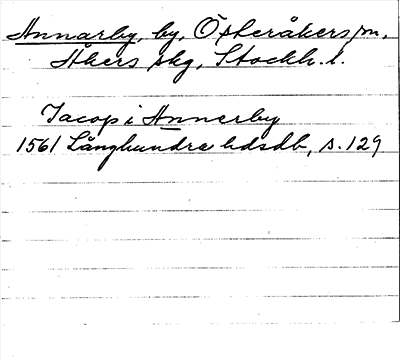 Annarby, by, Österåkers sn,
Åkers skg, Stockh. l.
Jacop i Annerby
1561 Långhundra hdsdb, s. 129